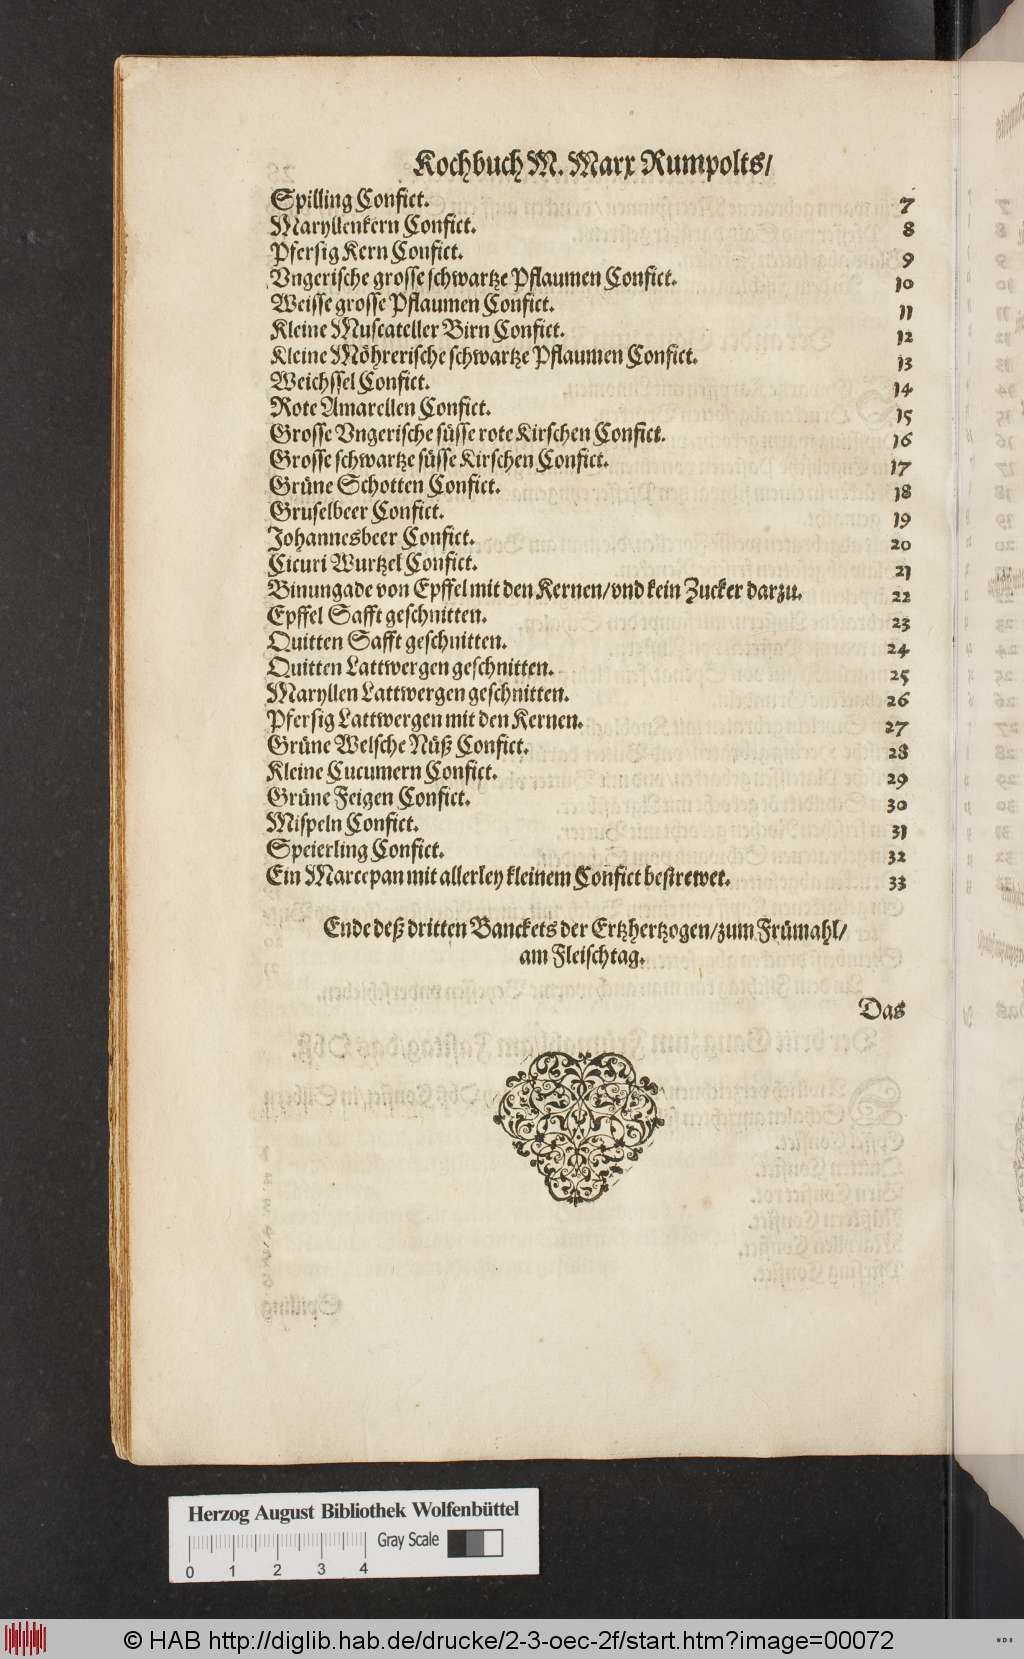 Kochbuch M. Marx Rumpolts/
Spilling Confict. 7
Maryllenkern Confict. 8
Pfersig Kern Confict. 9
Vngerische grosse schwartze Pflaumen Confict. 10
Weisse grosse Pflaumen Confict. 11
Kleine Muscateller Birn Confict. 12
Kleine Möhrerische schwartze Pflaumen Confict. 13
Weichssel Confict. 14
Rote Amarellen Confict. 15
Grosse Vngerische süsse rote Kirschen Confict. 16
Grosse schwartze süsse Kirschen Confict. 17
Grüne Schotten Confict. 18
Gruselbeer Confict. 19
Johannesbeer Confict. 20
Cicuri Wurtzel Confict. 21
Binungade von Epffel mit den Kernen/vnd kein Zucker darzu. 22
Epffel Safft geschnitten. 23
Quitten Safft geschnitten. 24
Quitten Lattwergen geschnitten. 25
Maryllen Lattwergen geschnitten. 26
Pfersig Lattwergen mit den Kernen. 27
Grüne Welsche Nüß Confict. 28
Kleine Cucumern Confict. 29
Grüne Feigen Confict. 30
Mispeln Confict. 31
Speierling Confict. 32
Ein Marcepan mit allerley kleinem Confict bestrewet. 33
Ende deß dritten Banckets der Ertzhertzogen/zum Frümahl/
am Fleischtag.
Das
Herzog August Bibliothek Wolfenbüttel
Gray Scale
0 1 2 3 4
© HAB http://diglib.hab.de/drucke/2-3-oec-2f/start.htm?image=00072